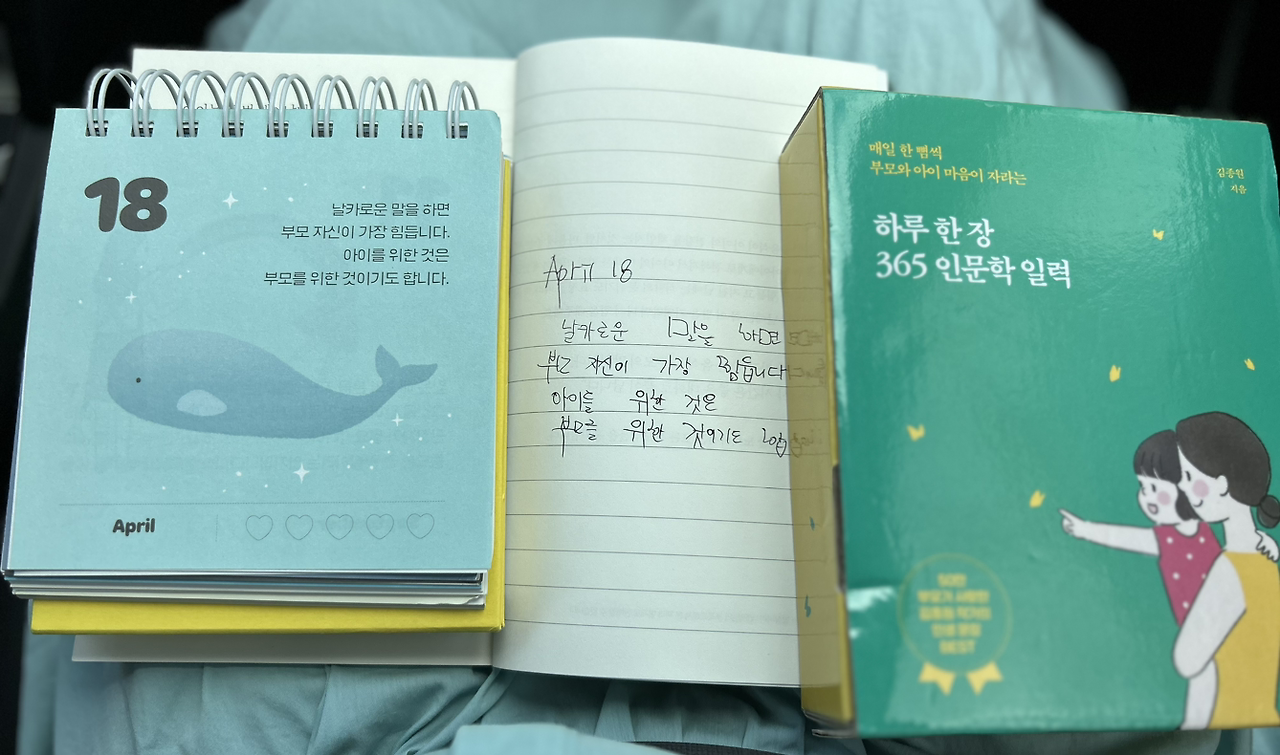 18
날카로운 말을 하면
부모 자신이 가장 힘듭니다.
아이를 위한 것은
부모를 위한 것이기도 합니다.
April
April 18
날카로운 말을 하면
부모 자신이 가장 힘듭니다
아이를 위한 것은
부모를 위한 것이기도
매일 한 뼘씩
부모와 아이 마음이 자라는
김종원
지음
하루 한 장
365 인문학 일력
50만
부모가 사랑한
김종원 작가의
인생 문장
BEST